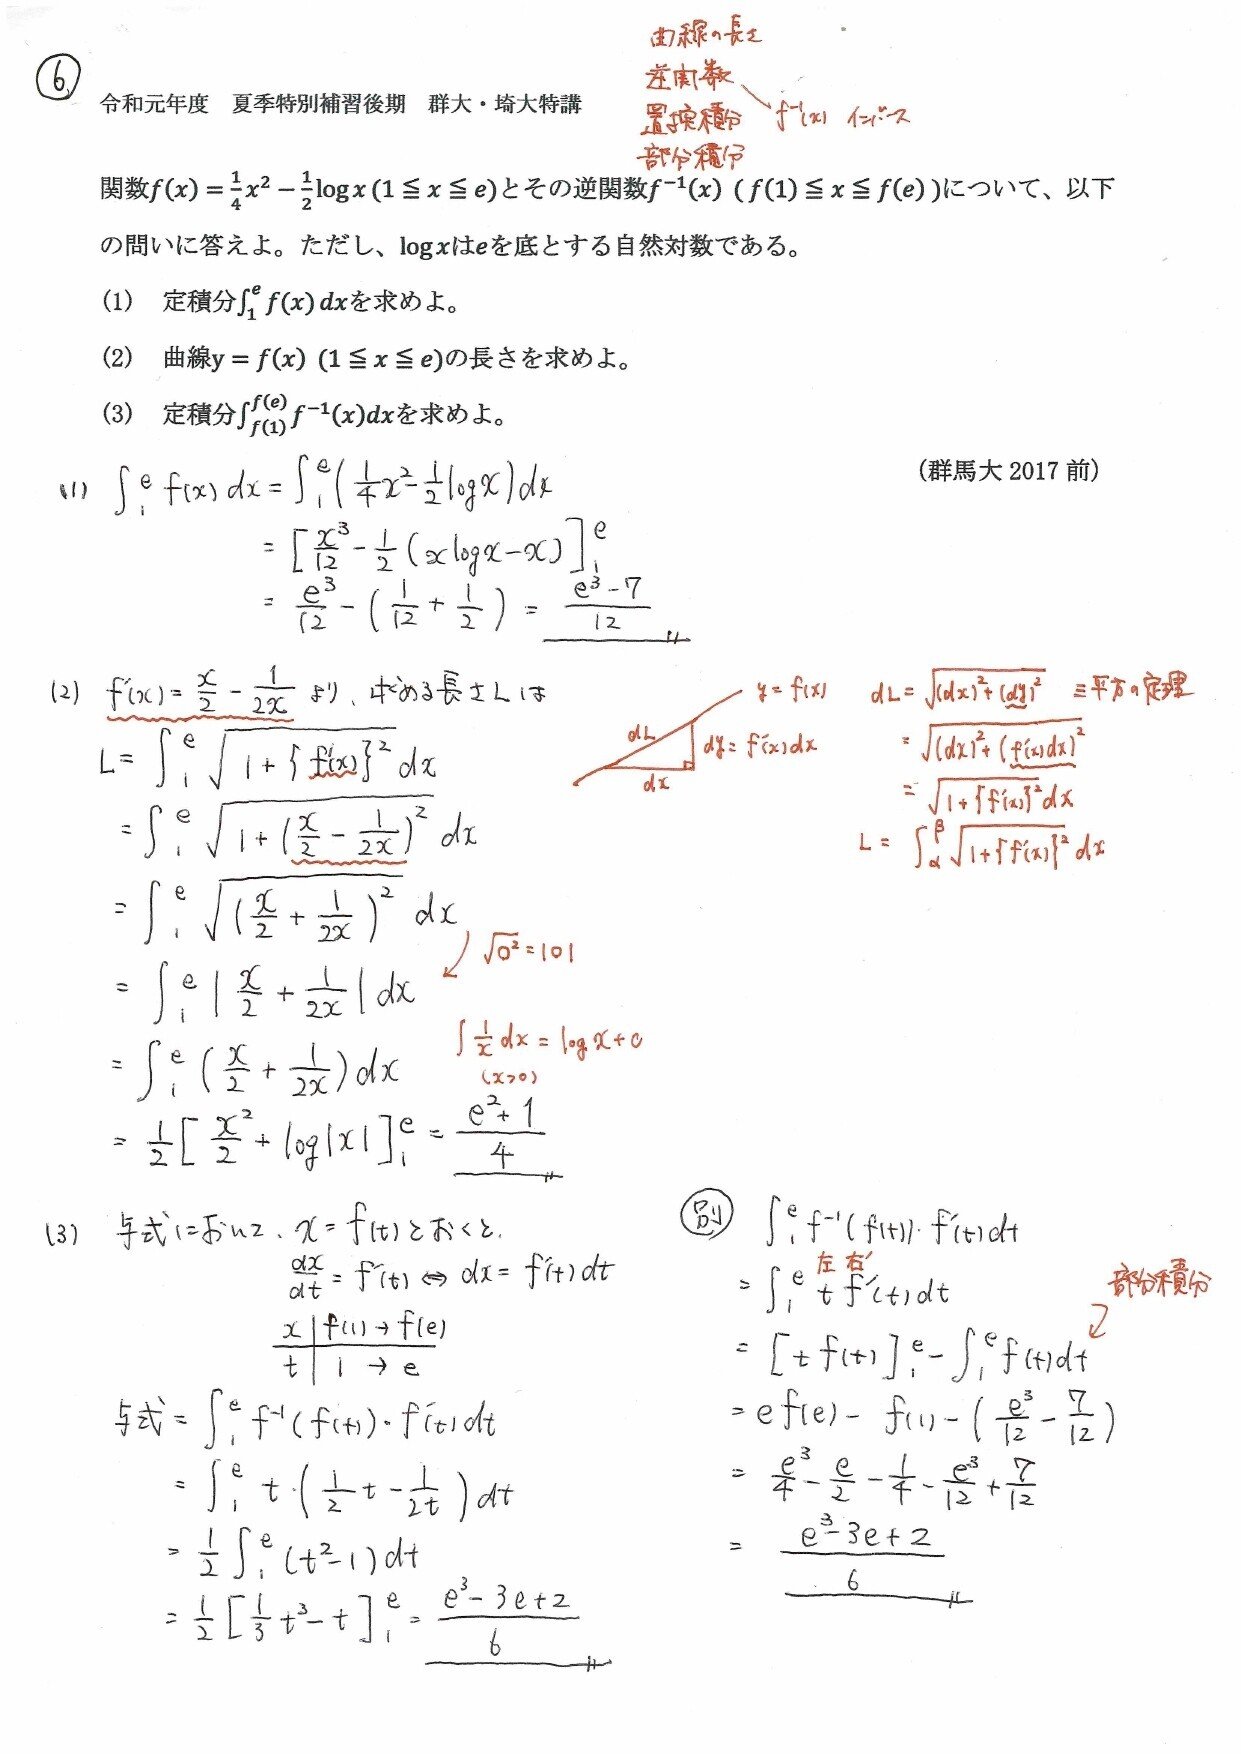 ⑥
曲線の長さ
逆関数
置換積分 f⁻¹(x) インバース
部分積分
令和元年度 夏季特別補習後期 群大・埼大特講
関数f(x) = 1/4 x² − 1/2 log x (1 ≦ x ≦ e)とその逆関数f⁻¹(x) ( f(1) ≦ x ≦ f(e) )について、以下
の問いに答えよ。ただし、log xはeを底とする自然対数である。
(1) 定積分∫₁ᵉ f(x) dxを求めよ。
(2) 曲線y = f(x) (1 ≦ x ≦ e)の長さを求めよ。
(3) 定積分∫_{f(1)}^{f(e)} f⁻¹(x)dxを求めよ。
(群馬大 2017 前)
(1) ∫₁ᵉ f(x) dx = ∫₁ᵉ (1/4 x² − 1/2 log x) dx
= [x³/12 − 1/2 (x log x − x)]₁ᵉ
= e³/12 − (1/12 + 1/2) = (e³ − 7)/12
(2) f′(x) = x/2 − 1/2x より、求める長さLは
L = ∫₁ᵉ √(1 + {f′(x)}²) dx
= ∫₁ᵉ √(1 + (x/2 − 1/2x)²) dx
= ∫₁ᵉ √((x/2 + 1/2x)²) dx
= ∫₁ᵉ |x/2 + 1/2x| dx
= ∫₁ᵉ (x/2 + 1/2x) dx
= 1/2 [x²/2 + log|x|]₁ᵉ = (e² + 1)/4
√○² = |○|
∫ 1/x dx = log x + C
(x>0)
y = f(x)
dL
dy = f′(x) dx
dx
dL = √((dx)² + (dy)²) 三平方の定理
= √((dx)² + (f′(x)dx)²)
= √(1 + {f′(x)}²) dx
L = ∫_α^β √(1 + {f′(x)}²) dx
(3) 与式において、x = f(t) とおくと、
dx/dt = f′(t) ⇔ dx = f′(t) dt
x | f(1) → f(e)
t | 1 → e
与式 = ∫₁ᵉ f⁻¹(f(t))・f′(t) dt
= ∫₁ᵉ t・(1/2 t − 1/2t) dt
= 1/2 ∫₁ᵉ (t² − 1) dt
= 1/2 [1/3 t³ − t]₁ᵉ = (e³ − 3e + 2)/6
別 ∫₁ᵉ f⁻¹(f(t))・f′(t) dt
左 右′
= ∫₁ᵉ t f′(t) dt
部分積分
= [t f(t)]₁ᵉ − ∫₁ᵉ f(t) dt
= e f(e) − f(1) − (e³/12 − 7/12)
= e³/4 − e/2 − 1/4 − e³/12 + 7/12
= (e³ − 3e + 2)/6